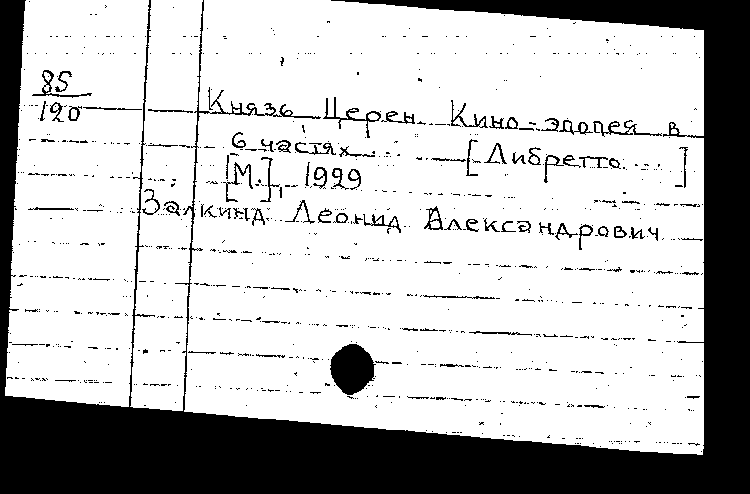 85
120
Князь Церен. Кино-эпопея в
6 частях... — [Либретто...]
[М.], 1929
Залкинд Леонид Александрович